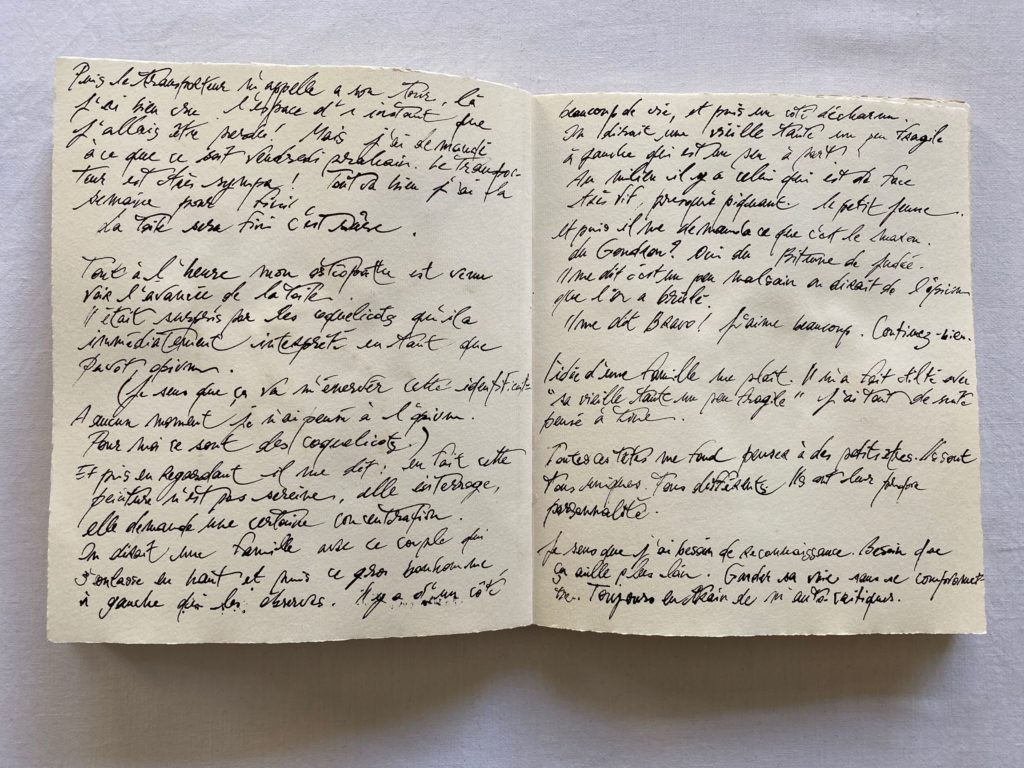 Puis le transporteur m'appelle a son tour, là
j'ai bien cru l'espace d'1 instant que
j'allais être perdu! Mais j'ai demandé
à ce que ce soit vendredi prochain. Le transpor-
teur est très sympa! Tout va bien j'ai la
semaine pour finir.
La toile sera fini c'est
Tout à l'heure mon ostéopathe est venu
voir l'avancée de la toile.
Il était surpris par les coquelicots qu'il a
immédiatement interprété en tant que
Pavot, opium.
(Je sens que ça va m'énerver cette
A aucun moment je n'ai pensé à l'opium.
Pour moi ce sont des coquelicots.)
Et puis en regardant il me dit: en fait cette
peinture n'est pas sereine, elle interroge,
elle demande une certaine concentration.
On dirait une famille avec ce couple qui
s'entasse en haut et puis ce gros bonhomme
à gauche qui les observe. Il y a d'un côté
beaucoup de vie, et puis un côté décharné.
On dirait une vieille tante un peu fragile
à gauche qui est un peu à part!
Au milieu il y a celui qui est de face
très vif, presque piquant. le petit jeune.
et puis il me demande ce que c'est le marron.
du Goudron? Oui du Bitume de Judée.
Il me dit c'est un peu malsain on dirait de l'opium
que l'on a brûlé.
Il me dit Bravo! J'aime beaucoup. Continuez bien.
l'idée d'une famille me plait. Il m'a fait tilté avec
"sa vieille tante un peu fragile" J'ai tout de suite
pensé à
Toutes ces têtes me font penser à des petits êtres. Ils sont
Tous uniques. Tous différents Ils ont leur propre
personnalité.
Je sens que j'ai besoin de reconnaissance. Besoin que
ça aille plus loin. Garder sa voie sans se compromet-
tre. Toujours en train de m'autocritiquer.